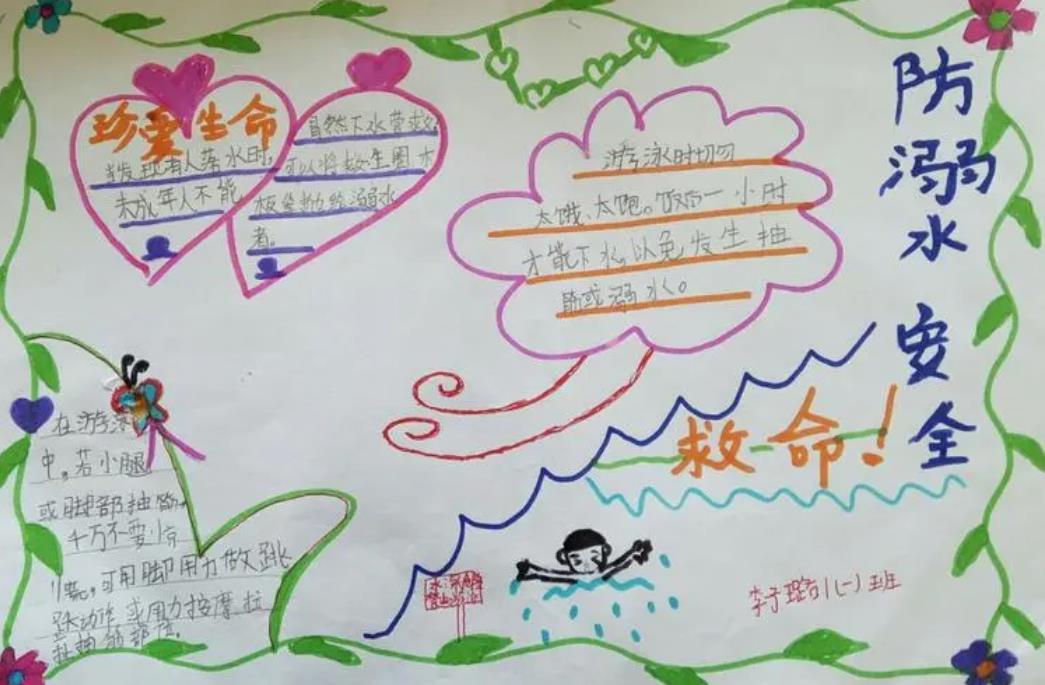 防溺水 安全
珍爱生命
当发现有人落水时,
未成年人不能
冒然下水营救,
可以将救生圈、木
板等抛给溺水
者。
游泳时切勿
太饿、太饱。饭后一小时
才能下水,以免发生抽
筋或溺水。
救命!
在游泳
中,若小腿
或脚部抽筋,
千万不要惊
慌,可用脚用力做跳
跃动作,或用力按摩拉
扯抽筋部位。
水深危险
1(一)班